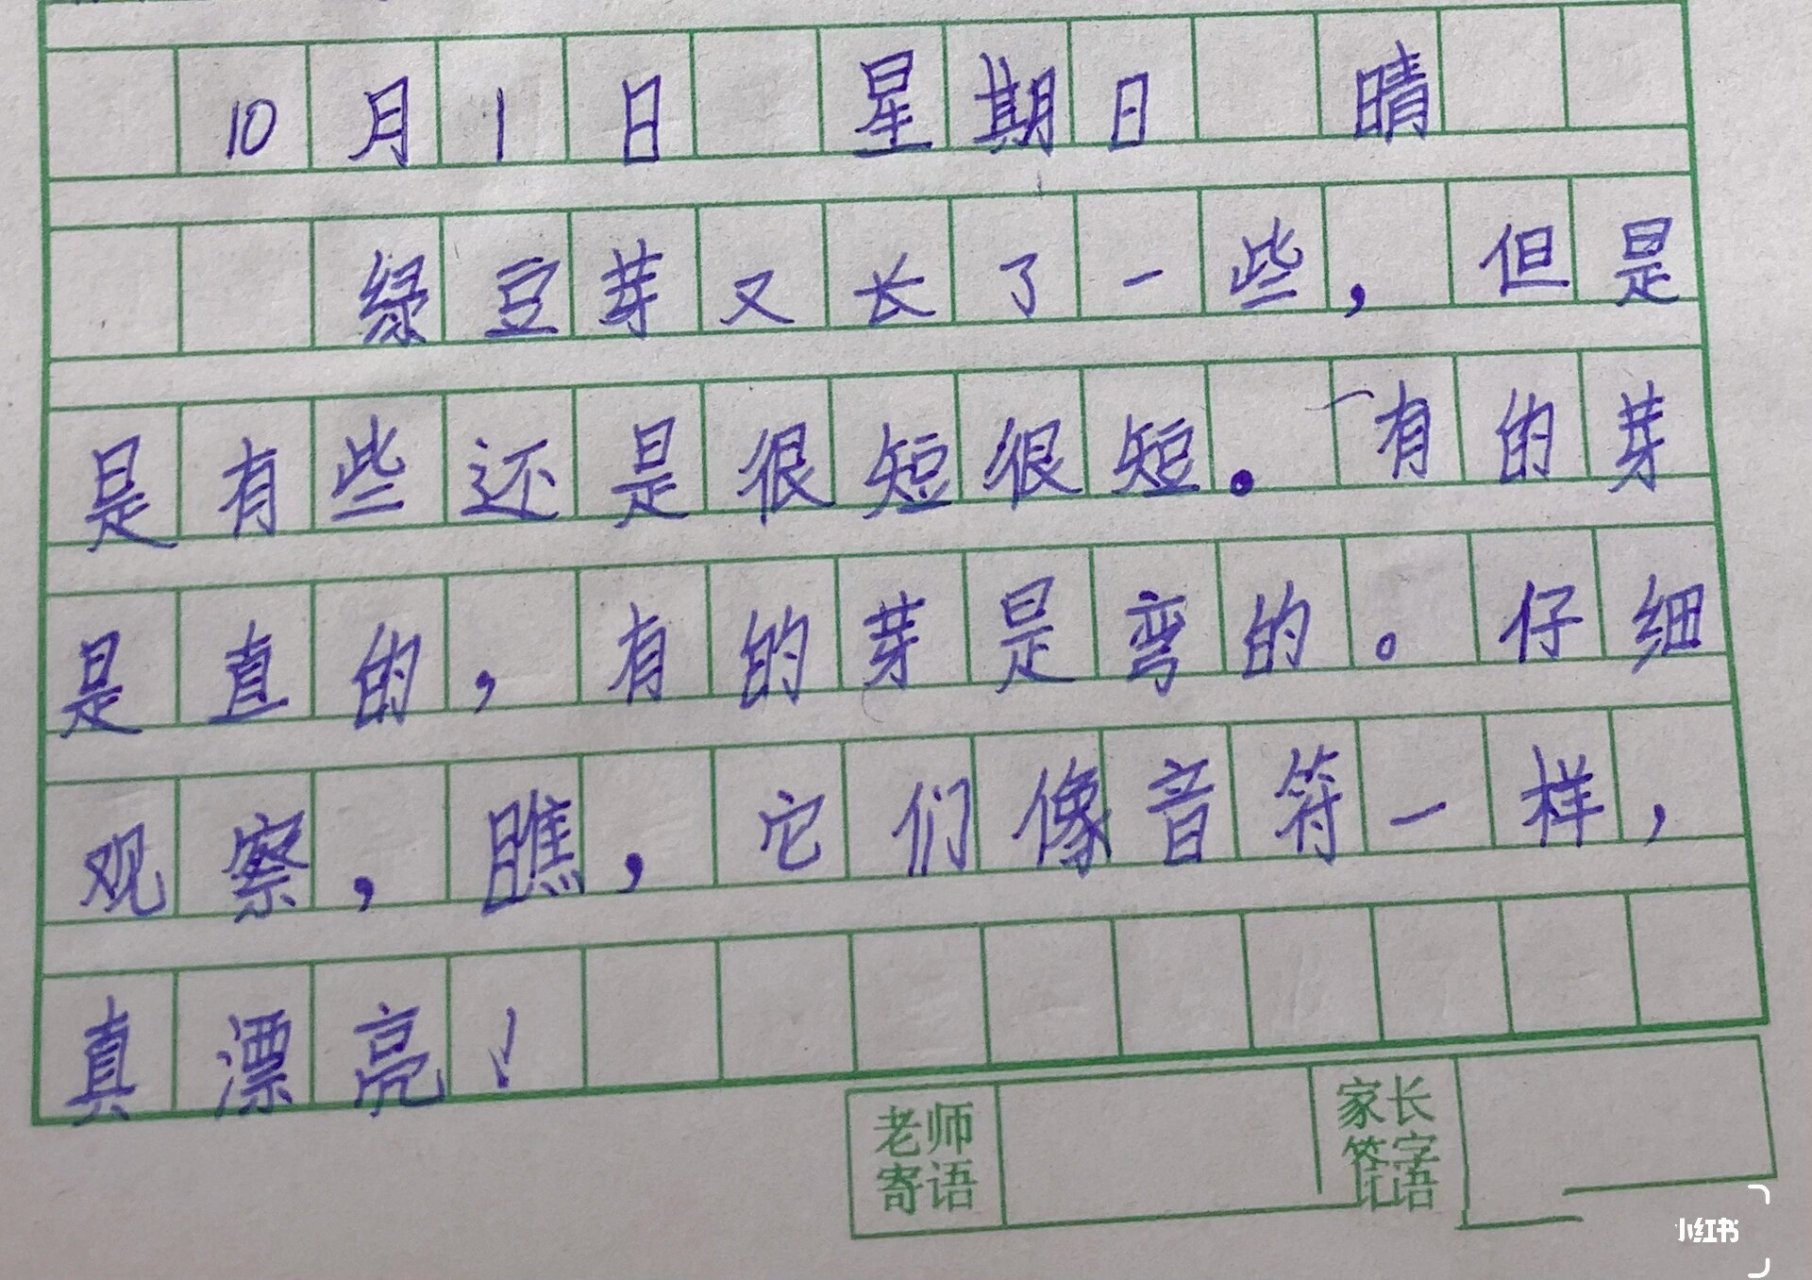 10月1日 星期日 晴
绿豆芽又长了一些，但是
是有些还是很短很短。有的芽
是直的，有的芽是弯的。仔细
观察，瞧，它们像音符一样，
真漂亮！
老师寄语 家长
小红书